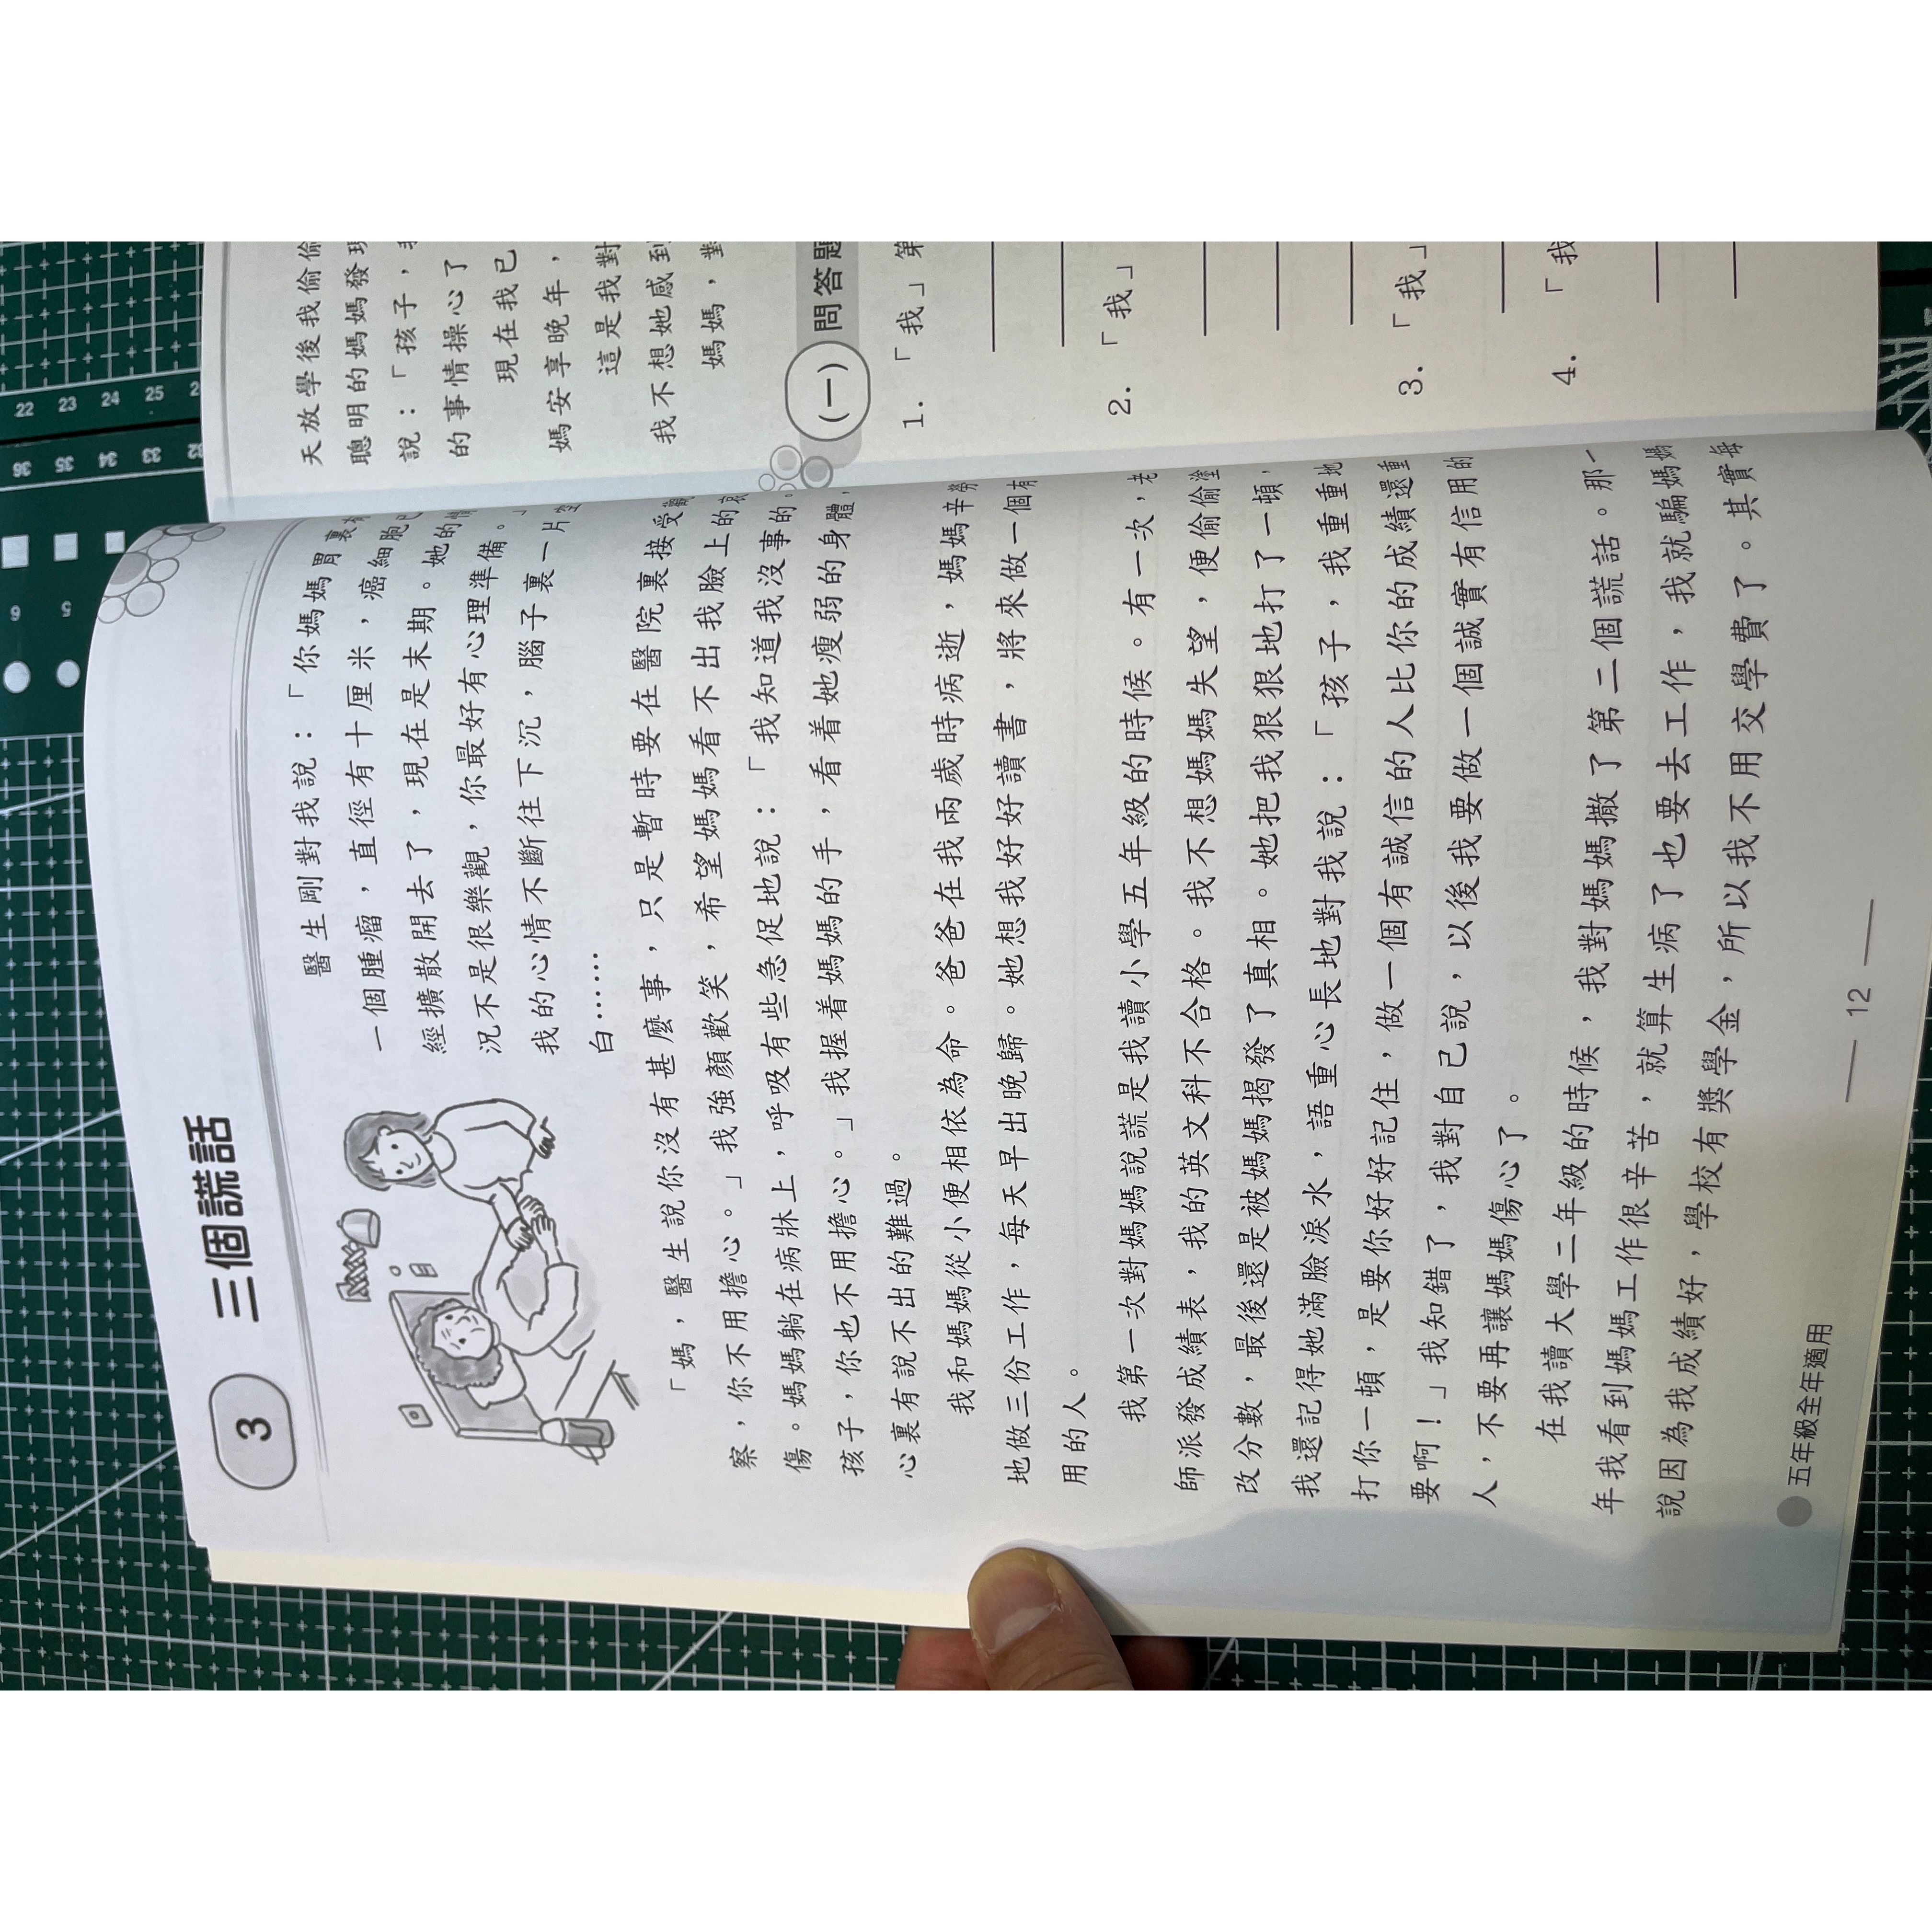 3 三個謊話
醫生剛對我說：「你媽媽胃裏有
一個腫瘤，直徑有十厘米，癌細胞已
經擴散開去了，現在是末期。她的情
況不是很樂觀，你最好有心理準備。」
我的心情不斷往下沉，腦子裏一片空
白……
「媽，醫生說你沒有甚麼事，只是暫時要在醫院裏接受觀
察，你不用擔心。」我強顏歡笑，希望媽媽看不出我臉上的哀
傷。媽媽躺在病牀上，呼吸有些急促地說：「我知道我沒事的。
孩子，你也不用擔心。」我握着媽媽的手，看着她瘦弱的身體，
心裏有說不出的難過。
我和媽媽從小便相依為命。爸爸在我兩歲時病逝，媽媽辛勞
地做三份工作，每天早出晚歸。她想我好好讀書，將來做一個有
用的人。
我第一次對媽媽說謊是我讀小學五年級的時候。有一次，老
師派發成績表，我的英文科不合格。我不想媽媽失望，便偷偷塗
改分數，最後還是被媽媽揭發了真相。她把我狠狠地打了一頓，
我還記得她滿臉淚水，語重心長地對我說：「孩子，我重重地
打你一頓，是要你好好記住，做一個有誠信的人比你的成績還重
要啊！」我知錯了，我對自己說，以後我要做一個誠實有信用的
人，不要再讓媽媽傷心了。
在我讀大學二年級的時候，我對媽媽撒了第二個謊話。那一
年我看到媽媽工作很辛苦，就算生病了也要去工作，我就騙媽媽
說因為我成績好，學校有獎學金，所以我不用交學費了。其實每
五年級全年適用
12
天放學後我偷偷
聰明的媽媽發現
說：「孩子，
的事情操心了
現在我已
媽安享晚年，
這是我對
我不想她感到
媽媽，對
(一) 問答題
1. 「我」第
2. 「我」
3. 「我」
4. 「我
22
23
24
25
36
35
34
33
6
5